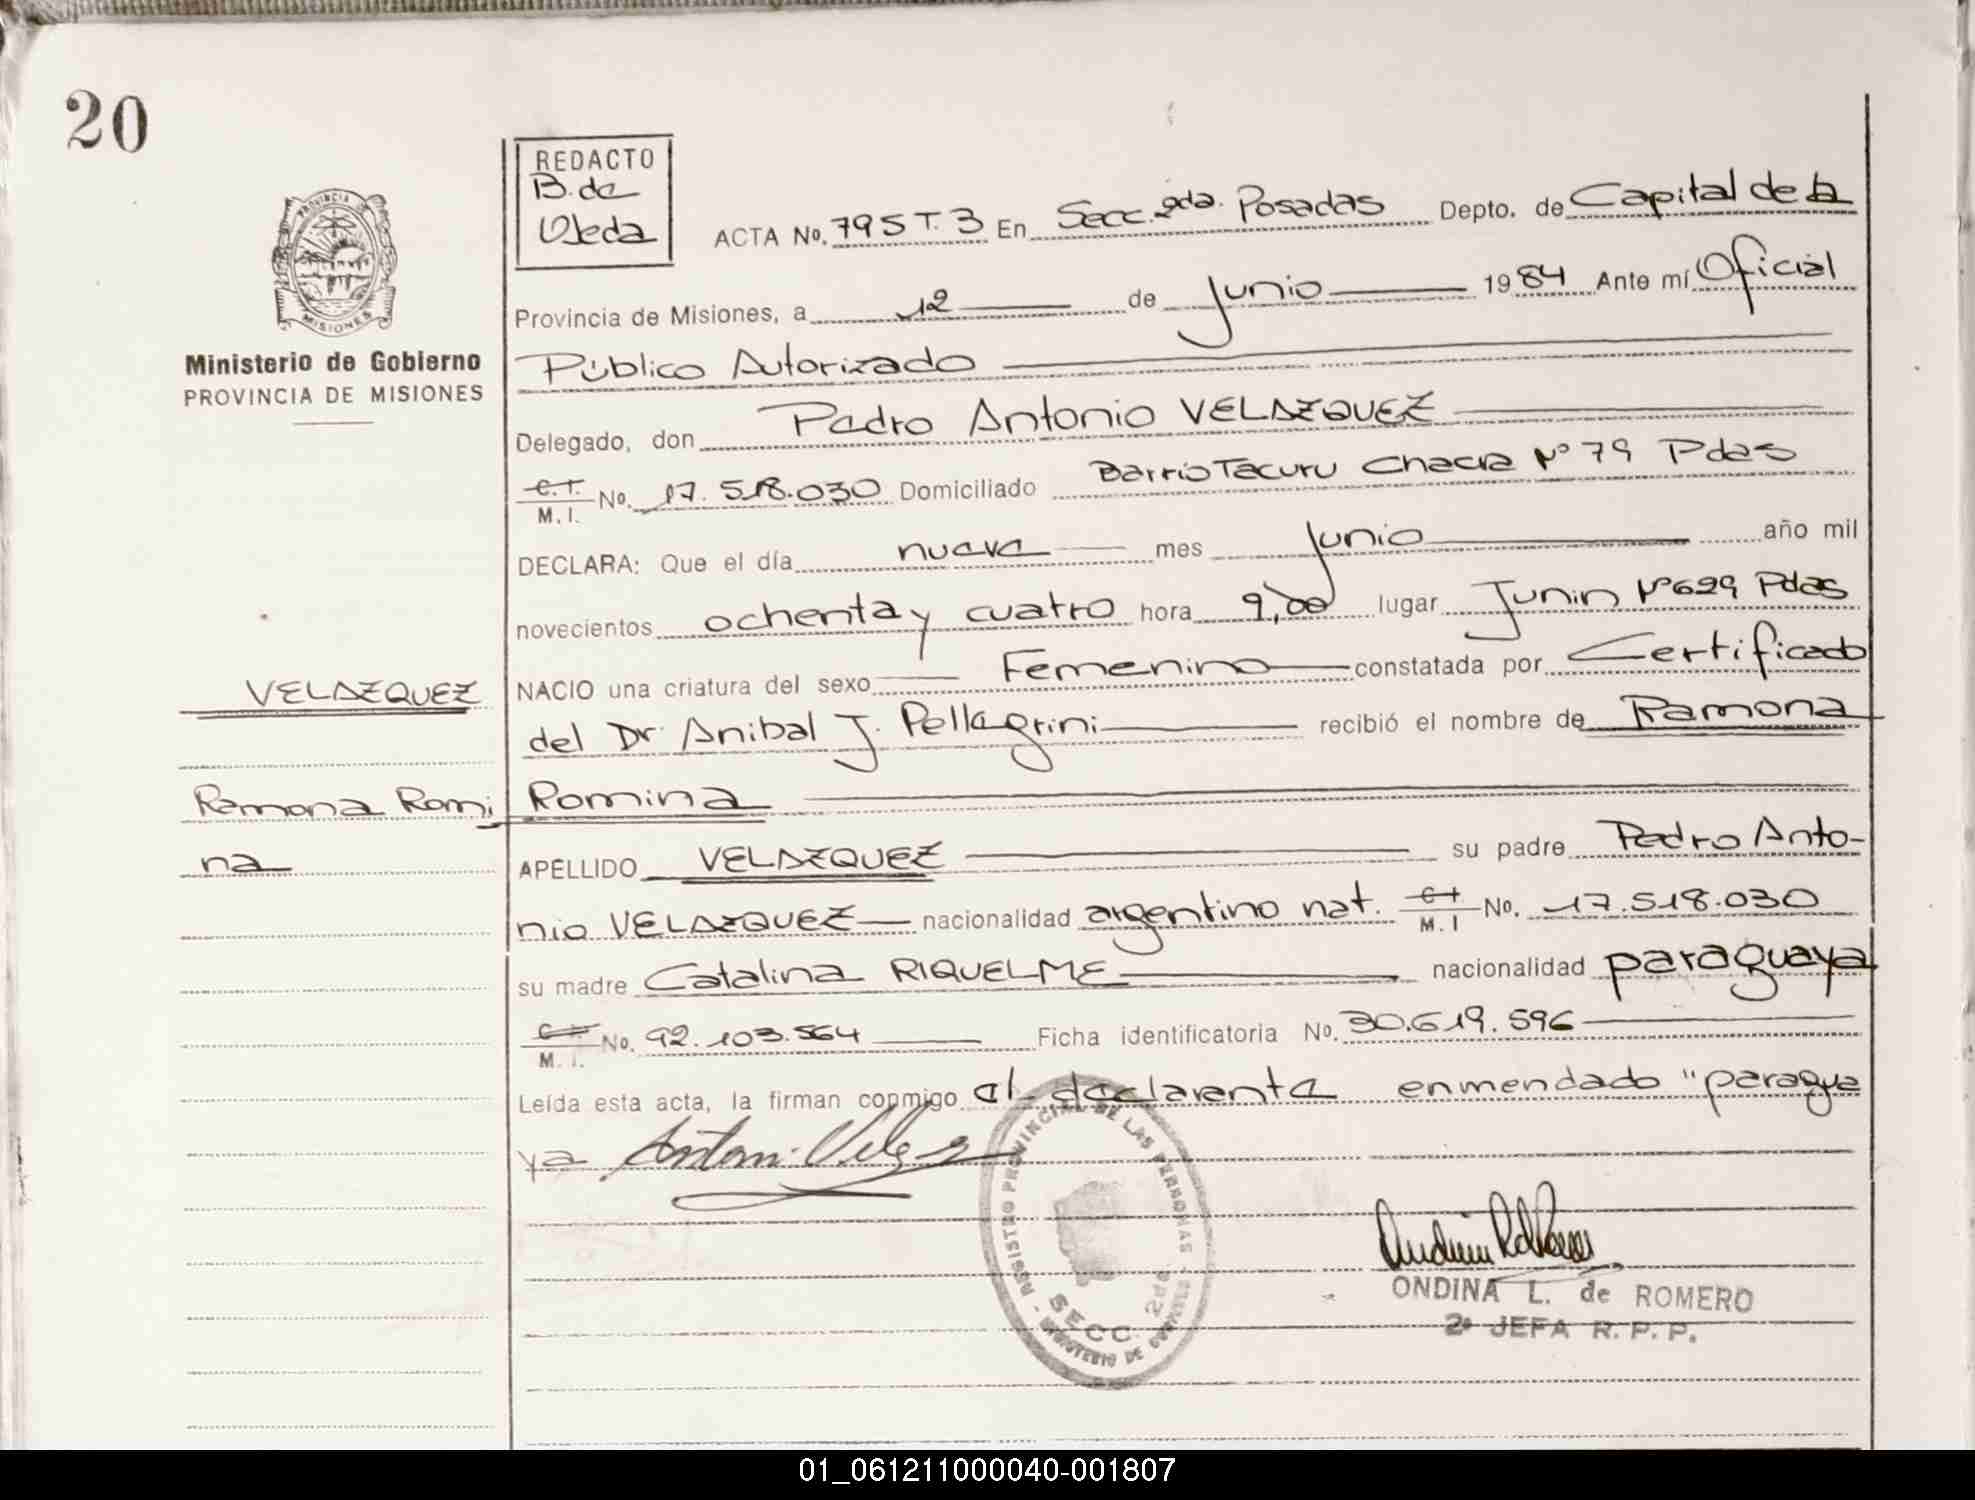 20
REDACTO
B. de
Ojeda
PROVINCIA DE
MISIONES
Ministerio de Gobierno
PROVINCIA DE MISIONES
ACTA No. 795 T. 3 En Secc. 2da. Posadas Depto. de Capital de la
Provincia de Misiones, a 12 de Junio 1984 Ante mí Oficial
Público Autorizado
Delegado, don Pedro Antonio VELAZQUEZ
C.I. M.I. No. 17.518.030 Domiciliado Barrio Tacuru Chacra Nº 79 Pdas
DECLARA: Que el día nueve mes Junio año mil
novecientos ochenta y cuatro hora 9,00 lugar Junin Nº 629 Pdas
VELAZQUEZ
NACIO una criatura del sexo Femenino constatada por Certificado
del Dr. Anibal J. Pellagrini recibió el nombre de Ramona
Ramona Romi
Romina
na
APELLIDO VELAZQUEZ su padre Pedro Anto-
nio VELAZQUEZ nacionalidad argentino nat. C.I. M.I No. 17.518.030
su madre Catalina RIQUELME nacionalidad paraguaya
C.I. M.I. No. 92.103.564 Ficha identificatoria No. 30.619.596
Leída esta acta, la firman conmigo el declarante enmendado "paragua
ya
REGISTRO PROVINCIAL DE LAS PERSONAS
SECC. 2da.
MINISTERIO DE GOBIERNO
ONDINA L. de ROMERO
2ª JEFA R. P. P.
01_061211000040-001807